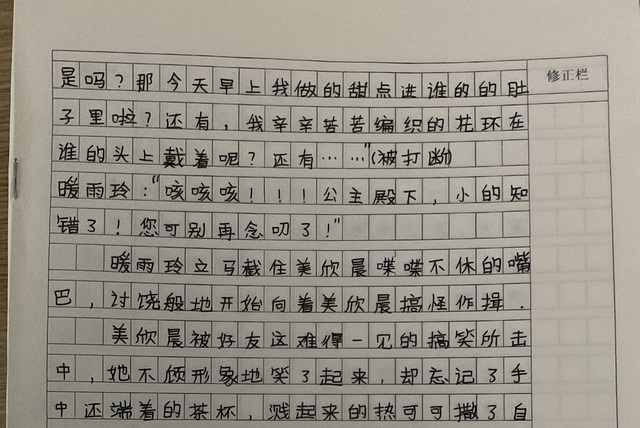 是吗？那今天早上我做的甜点进谁的的肚
修正栏
子里啦？还有，我辛辛苦苦编织的花环在
谁的头上戴着呢？还有……”(被打断)
暖雨玲：“咳咳咳！！！公主殿下，小的知
错了！您可别再念叨了！”
暖雨玲立马截住美欣晨喋喋不休的嘴
巴，讨饶般地开始向着美欣晨搞怪作揖．
美欣晨被好友这难得一见的搞笑所击
中，她不顾形象地笑了起来，却忘记了手
中还端着的茶杯，溅起来的热可可撒了自